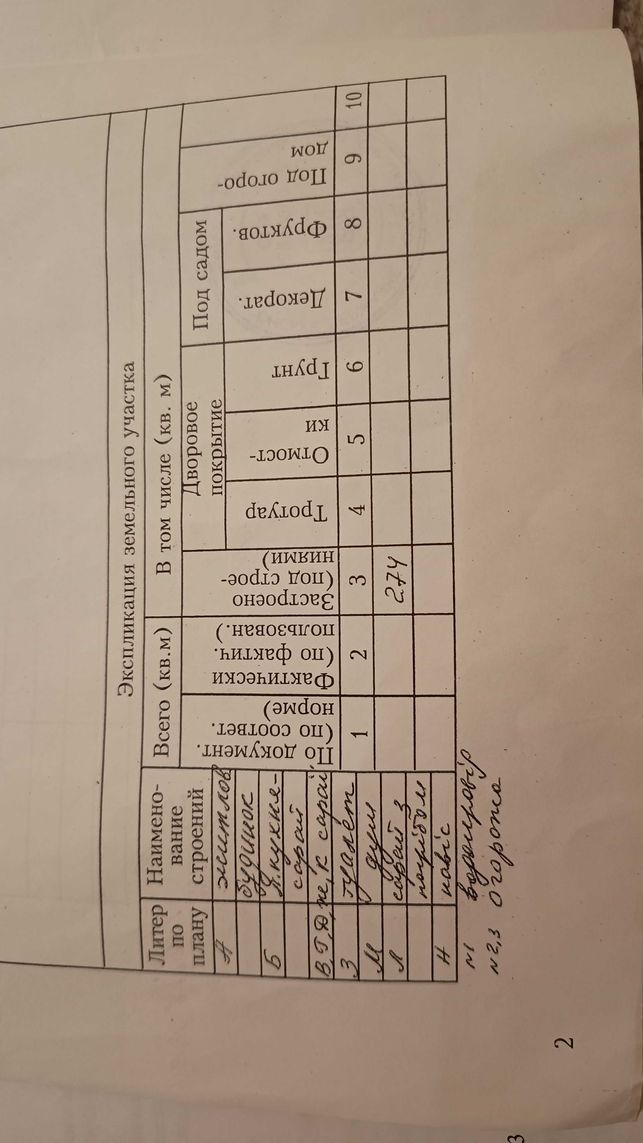 Экспликация земельного участка
Литер по плану
Наимено-
вание
строений
Всего (кв.м)
В том числе (кв. м)
По документ.
(по соответ.
норме)
Фактически
(по фактич.
пользован.)
Застроено
(под строе-
ниями)
Дворовое
покрытие
Тротуар
Отмост-
ки
Грунт
Под садом
Декорат.
Фруктов.
Под огоро-
дом
1 2 3 4 5 6 7 8 9 10
А житлов
будинок
Б л.кухня-
сарай
В,Г,Д, К сарай
З туалет
М душ
Л сарай з 274
погрібом
Н навіс
№1 водопровір
№2,3 огорожа
2
3